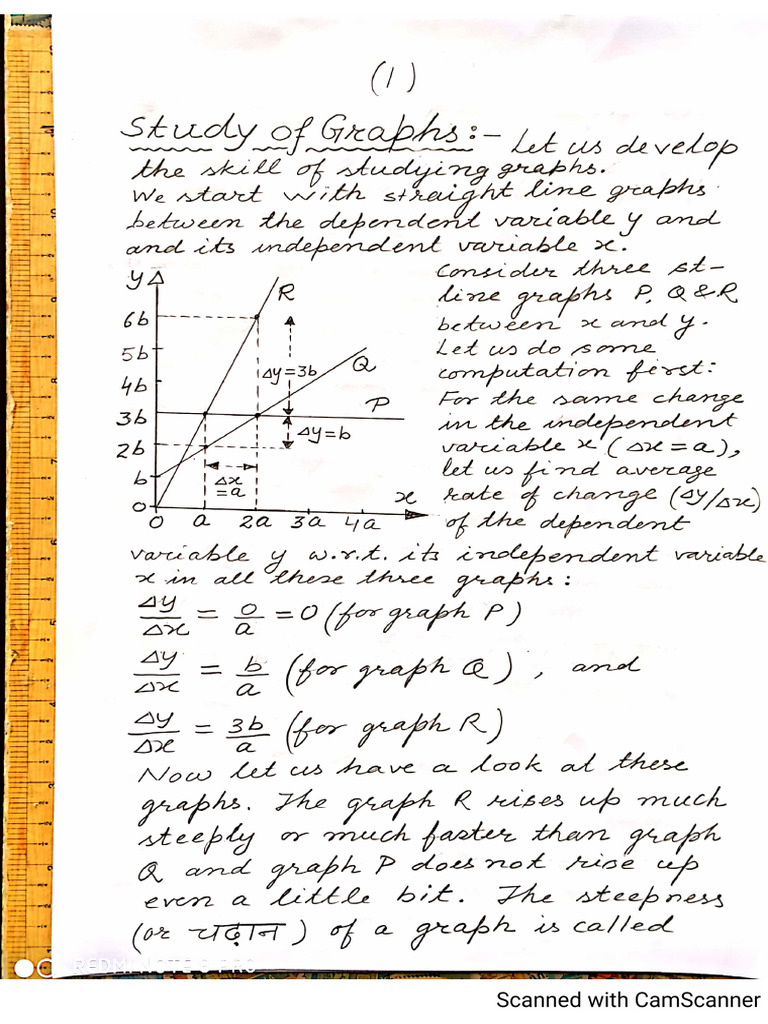 (1)
Study of Graphs:- Let us develop
the skill of studying graphs.
We start with straight line graphs
between the dependent variable y and
and its independent variable x.
Consider three st-
line graphs P, Q & R
between x and y.
Let us do some
computation first:
For the same change
in the independent
variable x (Δx = a),
let us find average
rate of change (Δy/Δx)
of the dependent
y
6b
5b
4b
3b
2b
b
0
R
Q
P
Δy=3b
Δy=b
Δx
=a
x
0 a 2a 3a 4a
variable y w.r.t. its independent variable
x in all these three graphs:
Δy/Δx = 0/a = 0 (for graph P)
Δy/Δx = b/a (for graph Q), and
Δy/Δx = 3b/a (for graph R)
Now let us have a look at these
graphs. The graph R rises up much
steeply or much faster than graph
Q and graph P does not rise up
even a little bit. The steepness
(or चढ़ान) of a graph is called
REDMI NOTE 8 PRO
Scanned with CamScanner